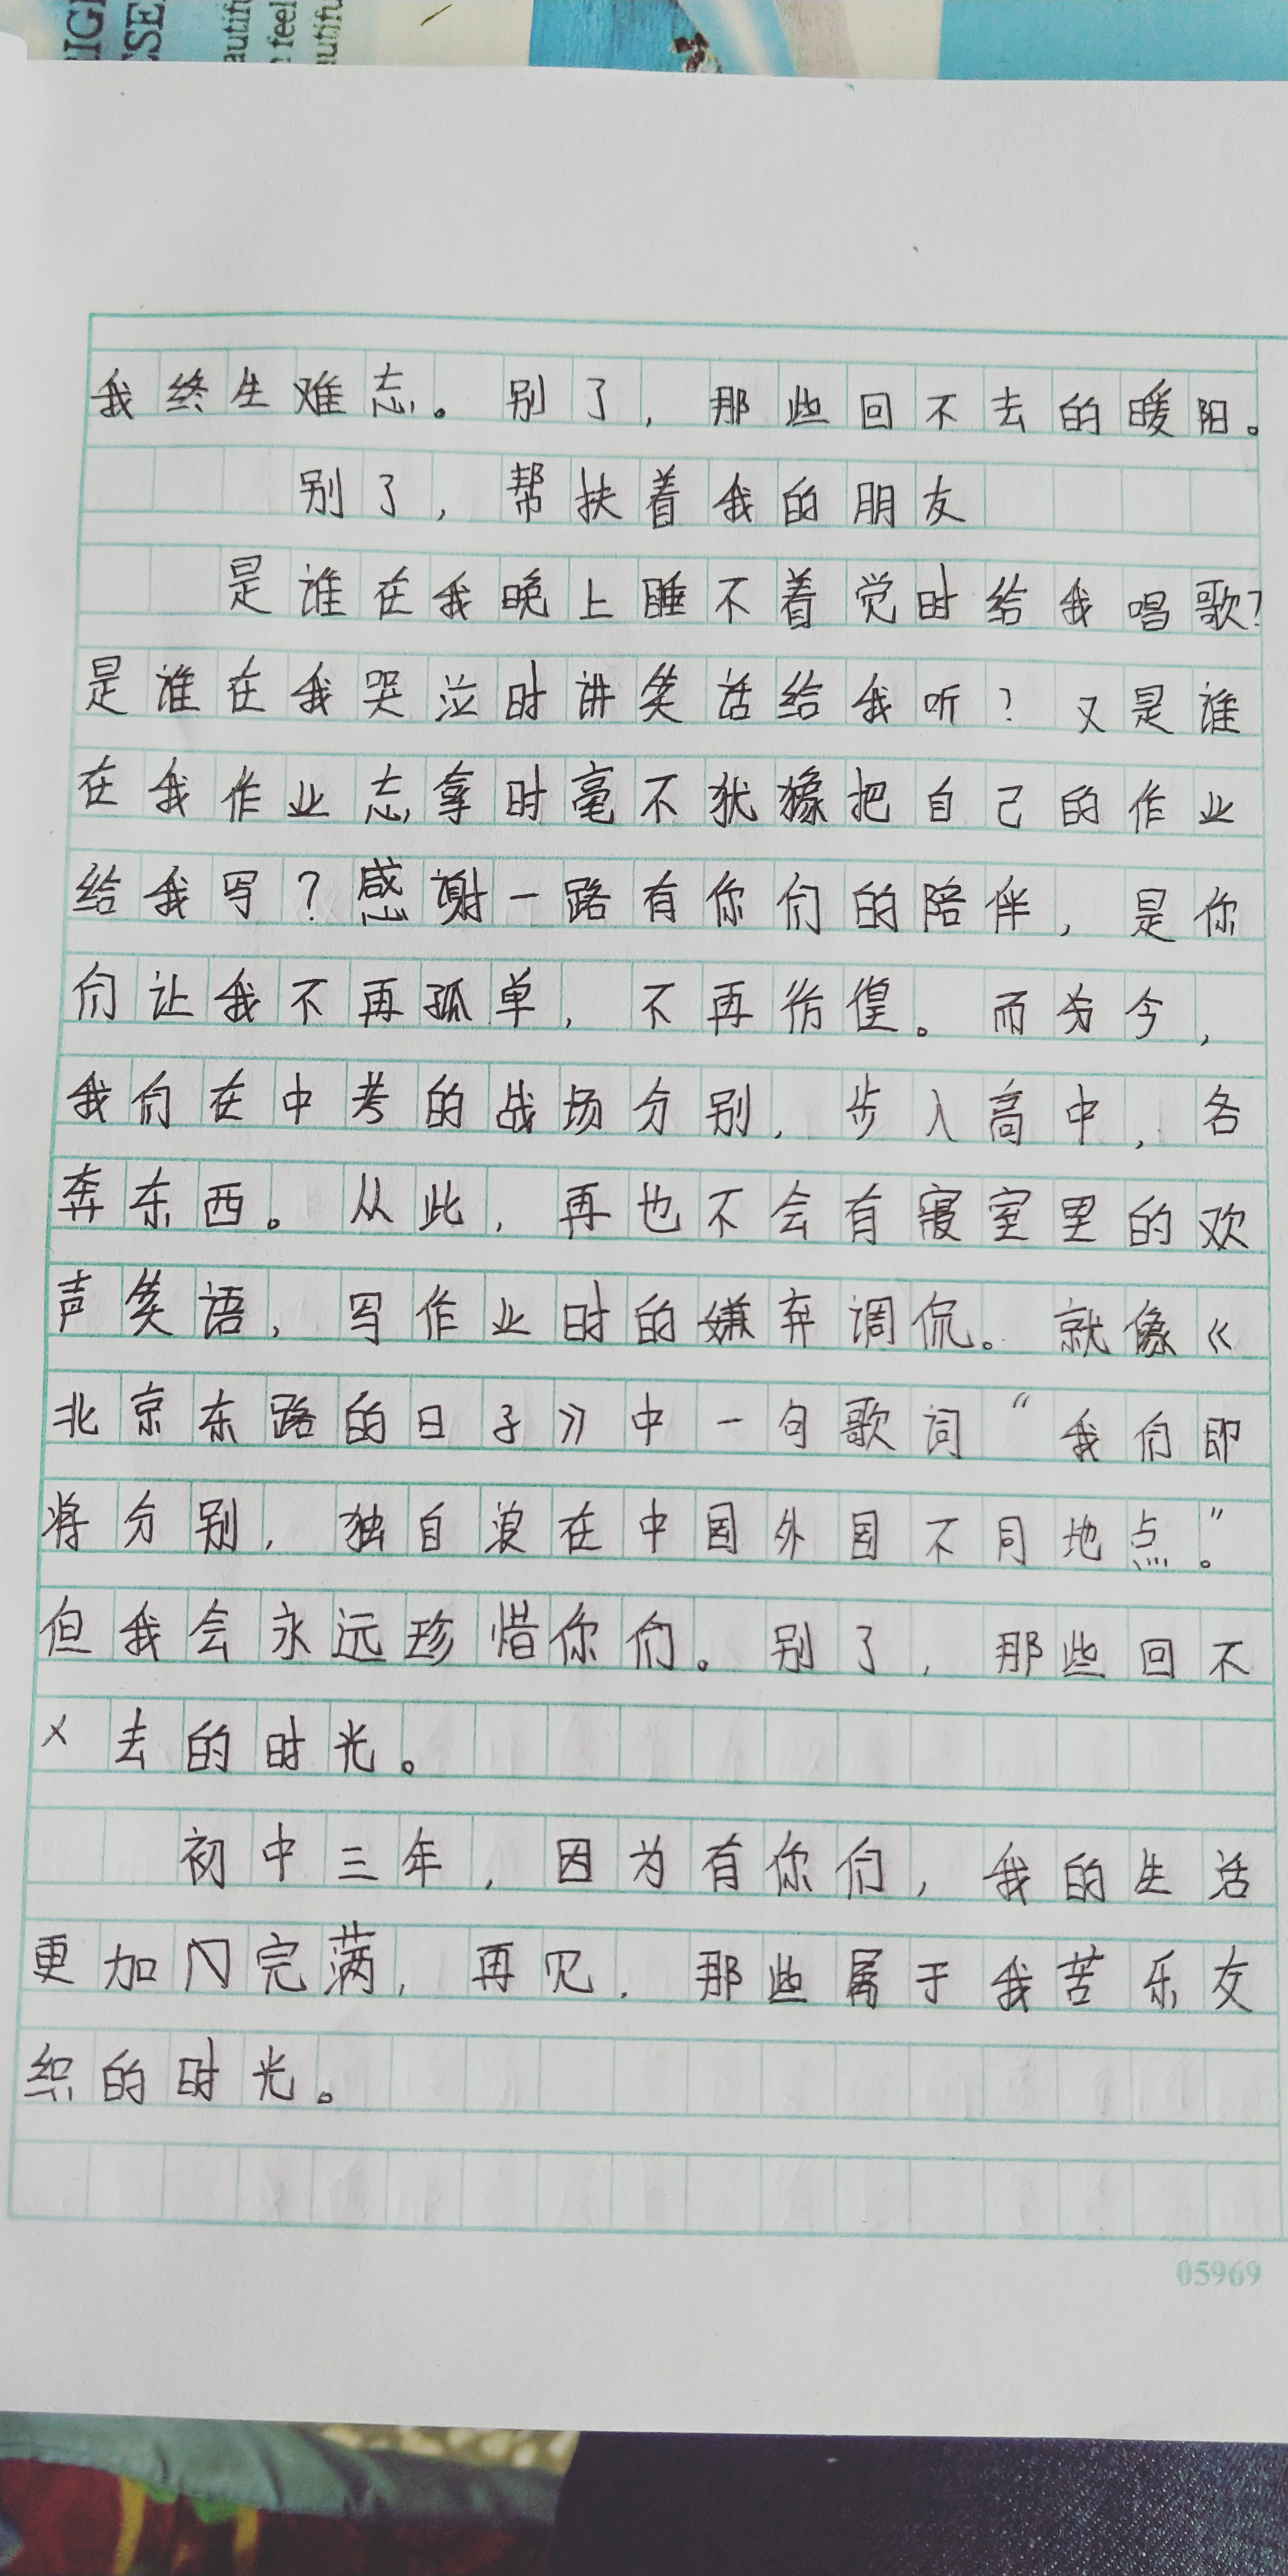 我终生难忘。别了，那些回不去的暖阳。
别了，帮扶着我的朋友
是谁在我晚上睡不着觉时给我唱歌？
是谁在我哭泣时讲笑话给我听？又是谁
在我作业忘拿时毫不犹豫把自己的作业
给我写？感谢一路有你们的陪伴，是你
们让我不再孤单，不再彷徨。而为今，
我们在中考的战场分别，步入高中，各
奔东西。从此，再也不会有寝室里的欢
声笑语，写作业时的嫌弃调侃。就像《
北京东路的日子》中一句歌词“我们即
将分别，独自浪在中国外国不同地点。”
但我会永远珍惜你们。别了，那些回不
去的时光。
初中三年，因为有你们，我的生活
更加完满，再见，那些属于我苦乐交
织的时光。
05969
autifu
feel
autifu